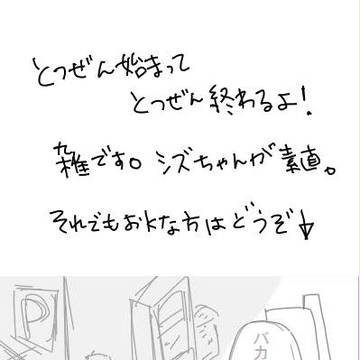 とつぜん始まって
とつぜん終わるよ!
雑です。シズちゃんが素直。
それでもおkな方はどうぞ↓
P
バカ